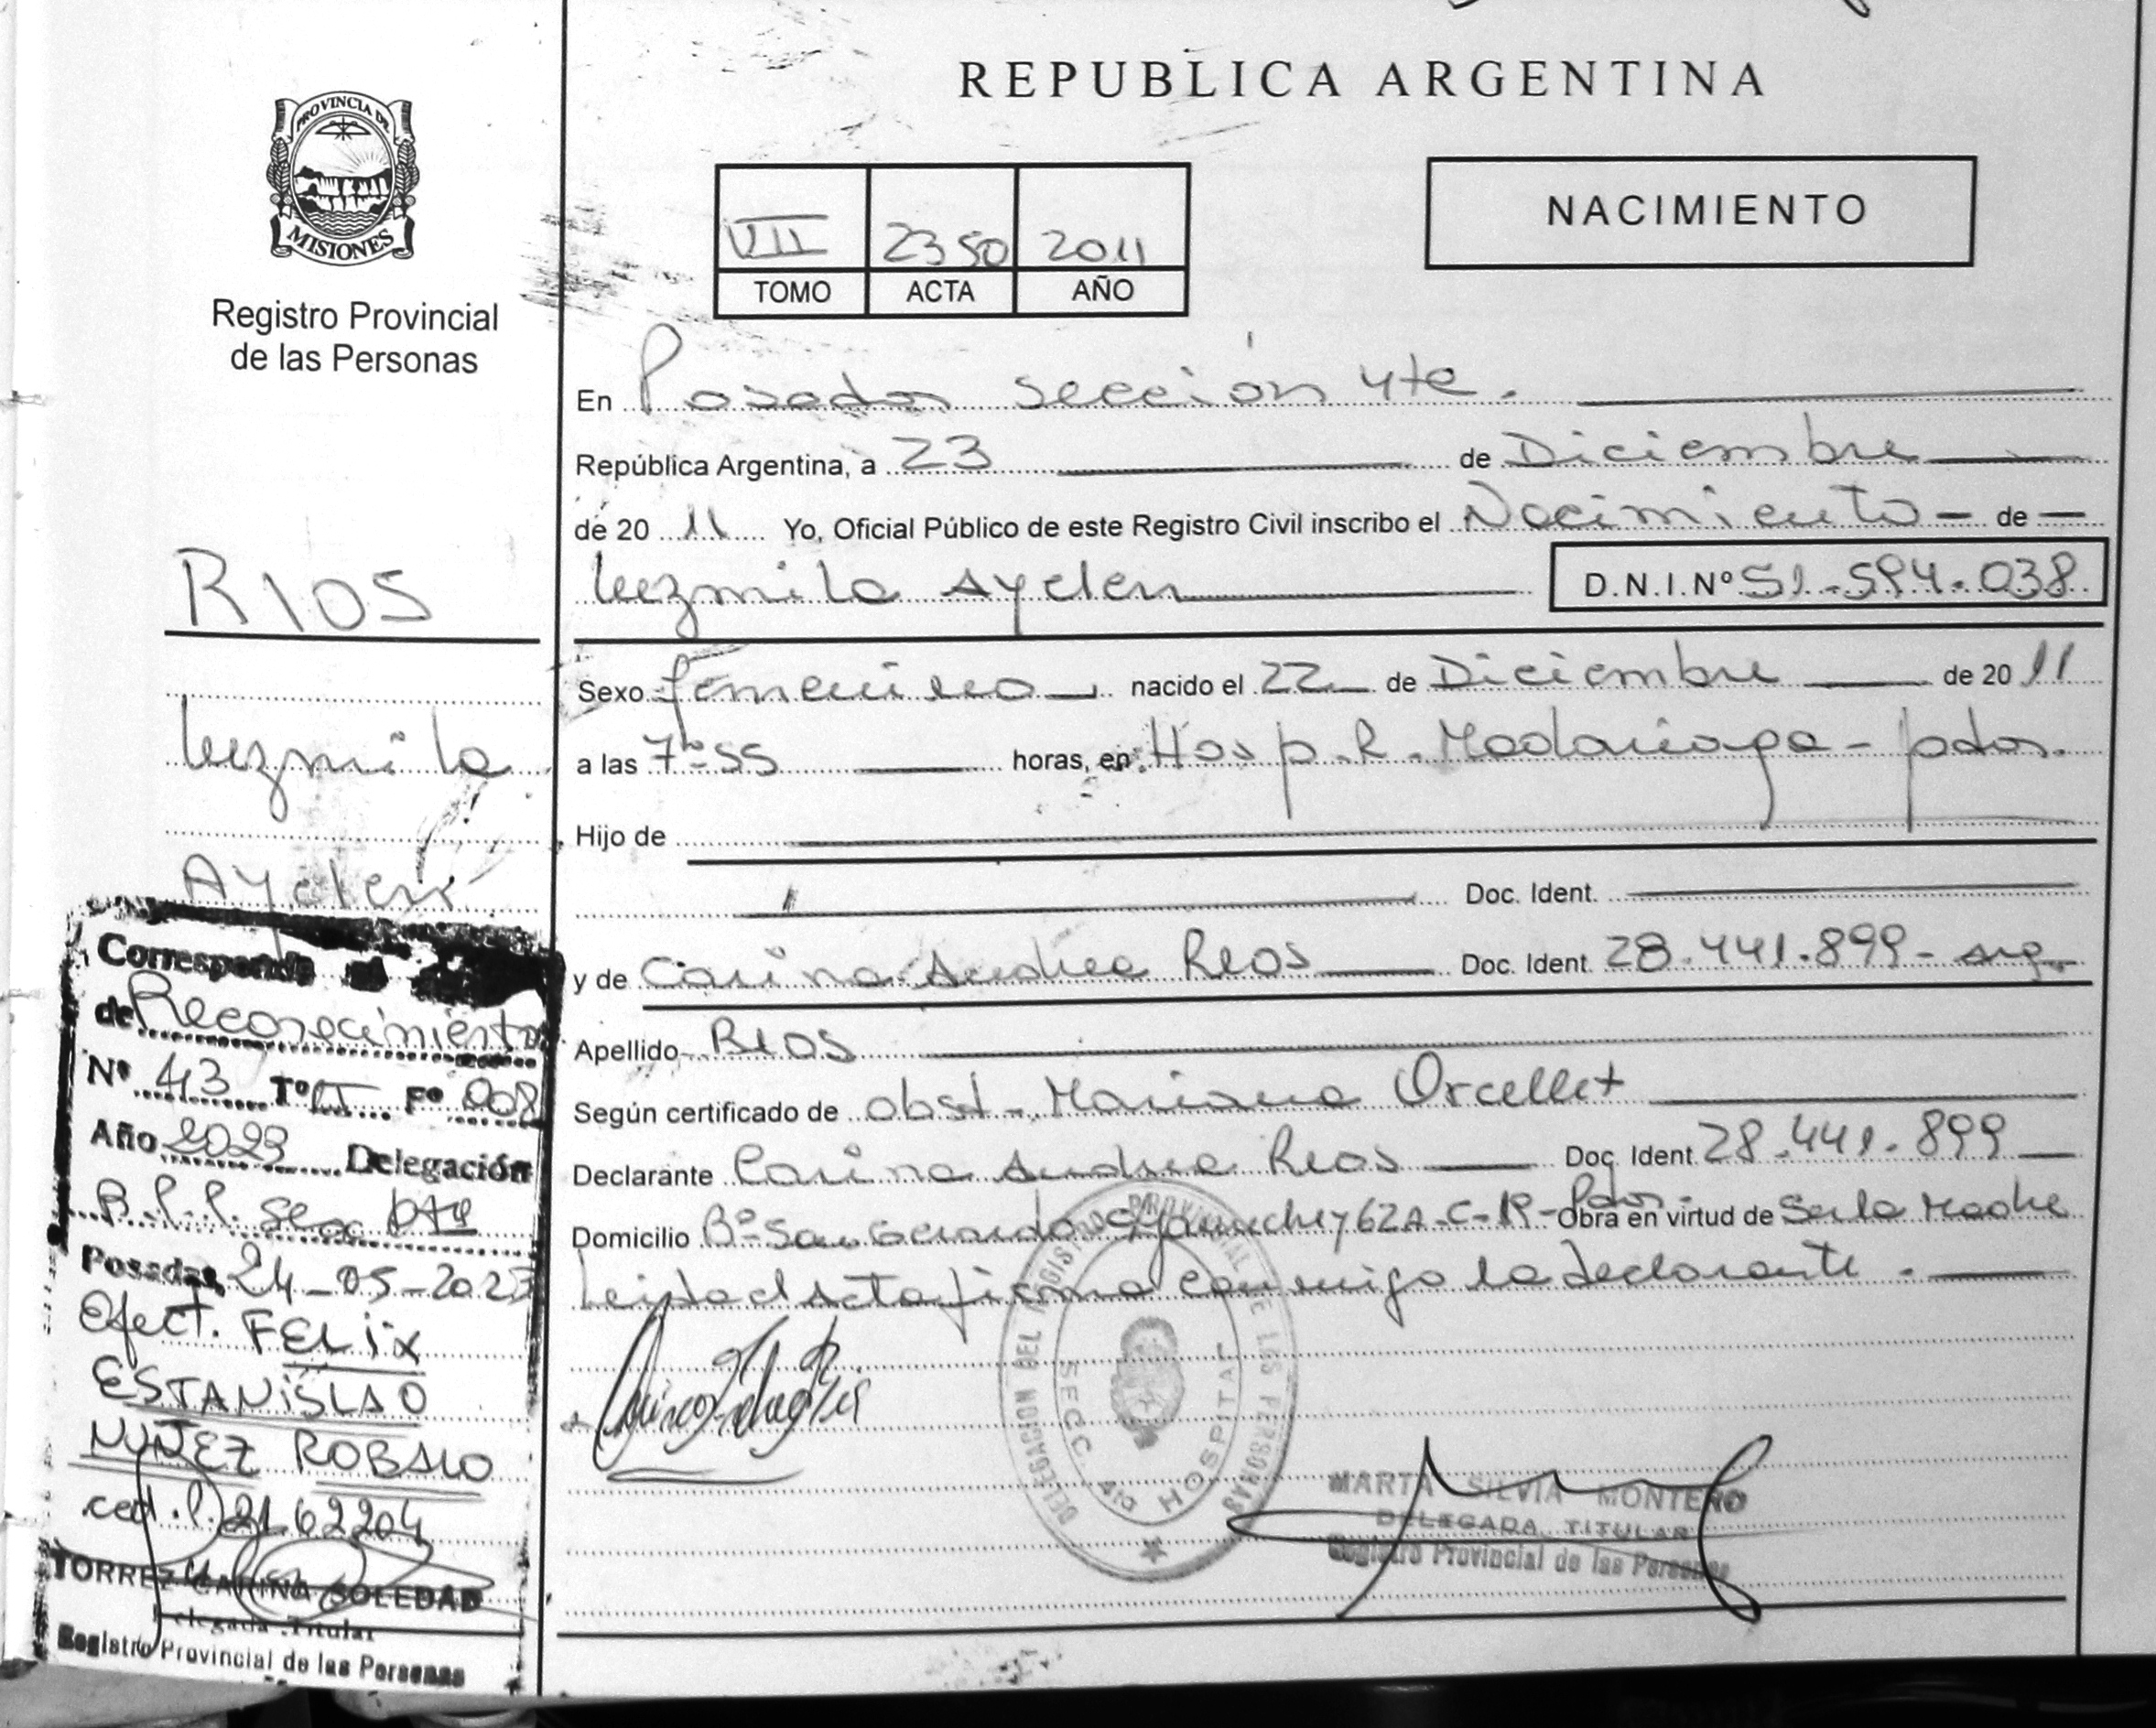 PROVINCIA DE
MISIONES
Registro Provincial
de las Personas
RIOS
Luzmila
Ayelen
Corresponde al
de Reconocimiento
Nº 43 Tº Fº 008
Año 2023 Delegación
Posadas, 24-05-2023
Efect. FELIX
ESTANISLAO
NUÑEZ ROBALO
ced. 2162204
TORREZ CARINA SOLEDAD
Delegada Titular
Registro Provincial de las Personas
REPUBLICA ARGENTINA
NACIMIENTO
VII 2350 2011
TOMO ACTA AÑO
En Posadas sección 4te.
República Argentina, a 23 de Diciembre
de 20 11 Yo, Oficial Público de este Registro Civil inscribo el Nacimiento - de -
Luzmila Ayelen D.N.I. Nº 51.594.038
Sexo femenino nacido el 22 de Diciembre de 20 11
a las 7h-55 horas, en Hosp. R. Madariaga - pdas.
Hijo de
Doc. Ident.
y de Carina Andrea Rios Doc. Ident. 28.441.899 - arg.
Apellido Rios
Según certificado de obst. Mariana Orcellet
Declarante Carina Andrea Rios Doc. Ident. 28.441.899
Domicilio Bº San Gerardo Pdas. Obra en virtud de Ser la Madre
Leida el Acta firma conmigo la declarante.
DELEGACION DEL REGISTRO PROVINCIAL DE LAS PERSONAS
SECC. 4ta HOSPITAL
MARTA SILVIA MONTERO
DELEGADA TITULAR
Registro Provincial de las Personas